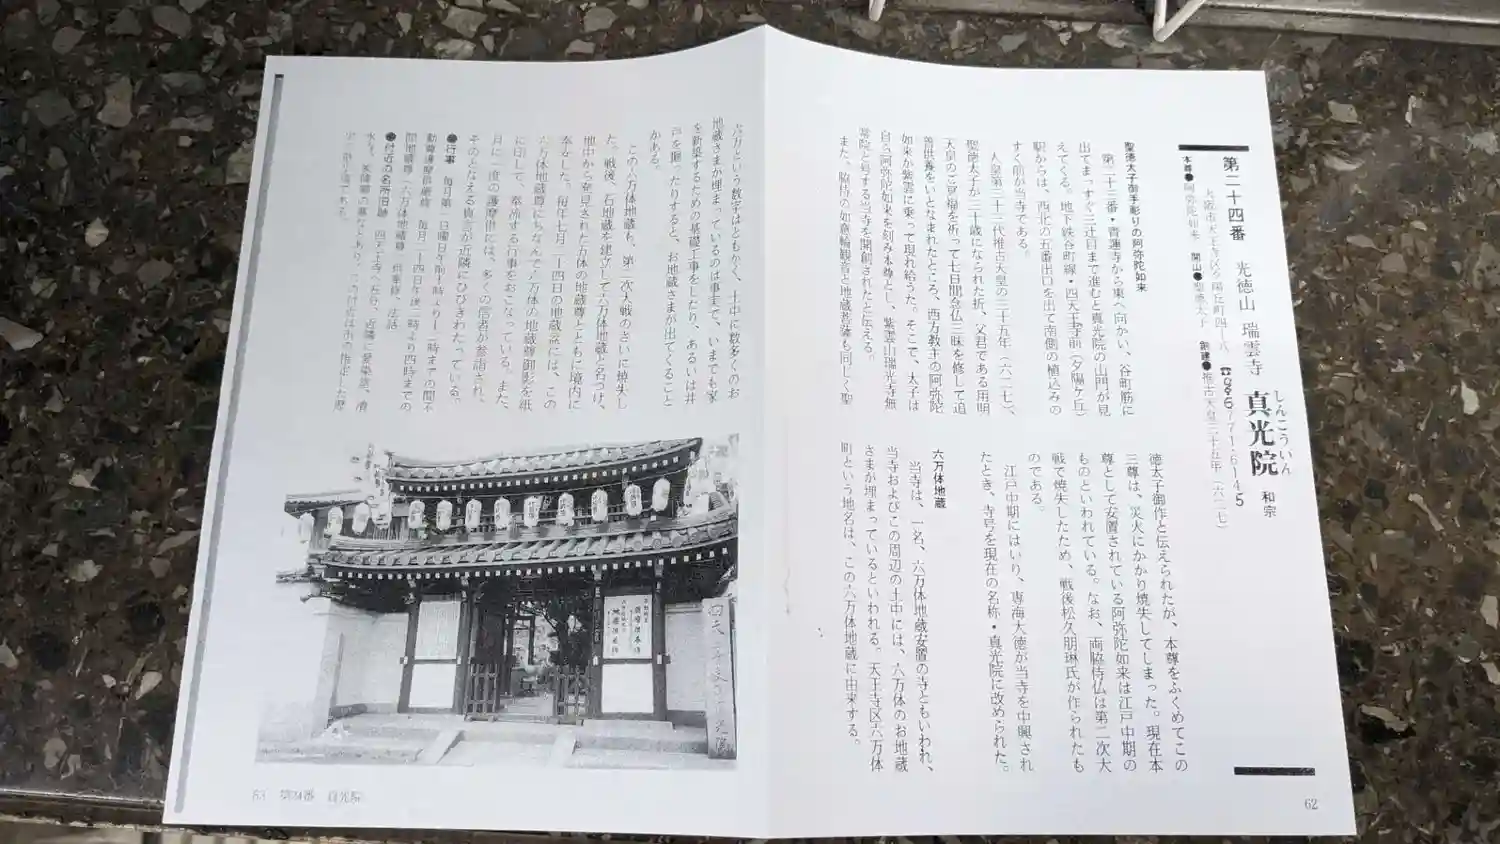 第二十四番 光徳山 瑞雲寺 真光院 和宗
しんこういん
大阪市天王寺区夕陽丘町四ー八 ☎06-771-6145
本尊●阿弥陀如来 開山●聖徳太子 創建●推古天皇三十五年(六二七)
聖徳太子御手彫りの阿弥陀如来
第二十三番・青蓮寺から東へ向かい、谷町筋に
出てま、すぐ三辻目まで進むと真光院の山門が見
えてくる。地下鉄谷町線・四天王寺前(夕陽ケ丘)
駅からは、西北の五番出口を出て南側の植込みの
すぐ前が当寺である。
人皇第三十三代推古天皇の三十五年(六二七)、
聖徳太子が三十歳になられた折、父君である用明
天皇のご冥福を祈って七日間念仏三昧を修して追
善供養をいとなまれたところ、西方教主の阿弥陀
如来が紫雲に乗って現れ給うた。そこで、太子は
自ら阿弥陀如来を刻み本尊とし、紫雲山瑞光寺無
常院と号する当寺を開創されたと伝える。
また、脇侍の如意輪観音と地蔵菩薩も同しく聖
徳太子御作と伝えられたが、本尊をふくめてこの
三尊は、災火にかかり焼失してしまった。現在本
尊として安置されている阿弥陀如来は江戸中期の
ものといわれている。なお、両脇侍仏は第二次大
戦で焼失したため、戦後松久朋琳氏が作られたも
のである。
江戸中期にはいり、専海大徳が当寺を中興され
たとき、寺号を現在の名称・真光院に改められた。
六万体地蔵
当寺は、一名、六万体地蔵安置の寺ともいわれ、
当寺およびこの周辺の土中には、六万体のお地蔵
さまが埋まっているといわれる。天王寺区六万体
町という地名は、この六万体地蔵に由来する。
62
六万という数字はともかく、土中に数多くのお
地蔵さまが埋まっているのは事実で、いまでも家
を新築するための基礎工事をしたり、あるいは井
戸を掘ったりすると、お地蔵さまが出てくること
がある。
この六万体地蔵も、第二次大戦のさいに焼失し
た。戦後、石地蔵を建立して六万体地蔵と名づけ、
地中から発見された万体の地蔵尊とともに境内に
奉安した。毎年七月二十四日の地蔵盆には、この
六万体地蔵尊にちなんで六万体の地蔵尊御影を紙
に印して、奉流する行事をおこなっている。また、
月に一度の護摩供には、多くの信者が参詣され、
そのとなえる真言が近隣にひびきわたっている。
●行事 毎月第一日曜日午前十時より十二時までの間不
動尊護摩供厳修 毎月二十四日午後二時より四時までの
間地蔵尊(六万体地蔵尊)供奉修、法話
●付近の名所旧跡 四天王寺へ五分、近隣に愛染堂、清
水寺、
の散歩道である。
63 第24番 真光院